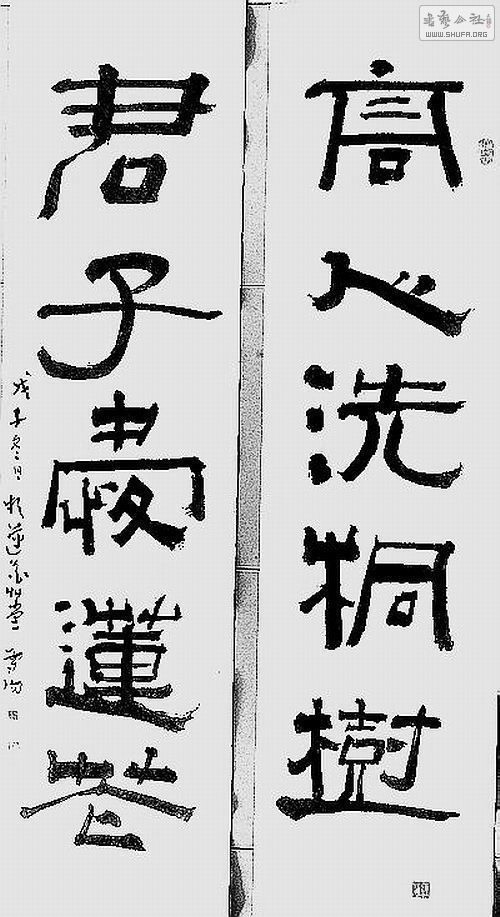 書藝公社
WWW.SHUFA.ORG
高心洗桐樹
君子愛蓮花
戊子冬日於蓮